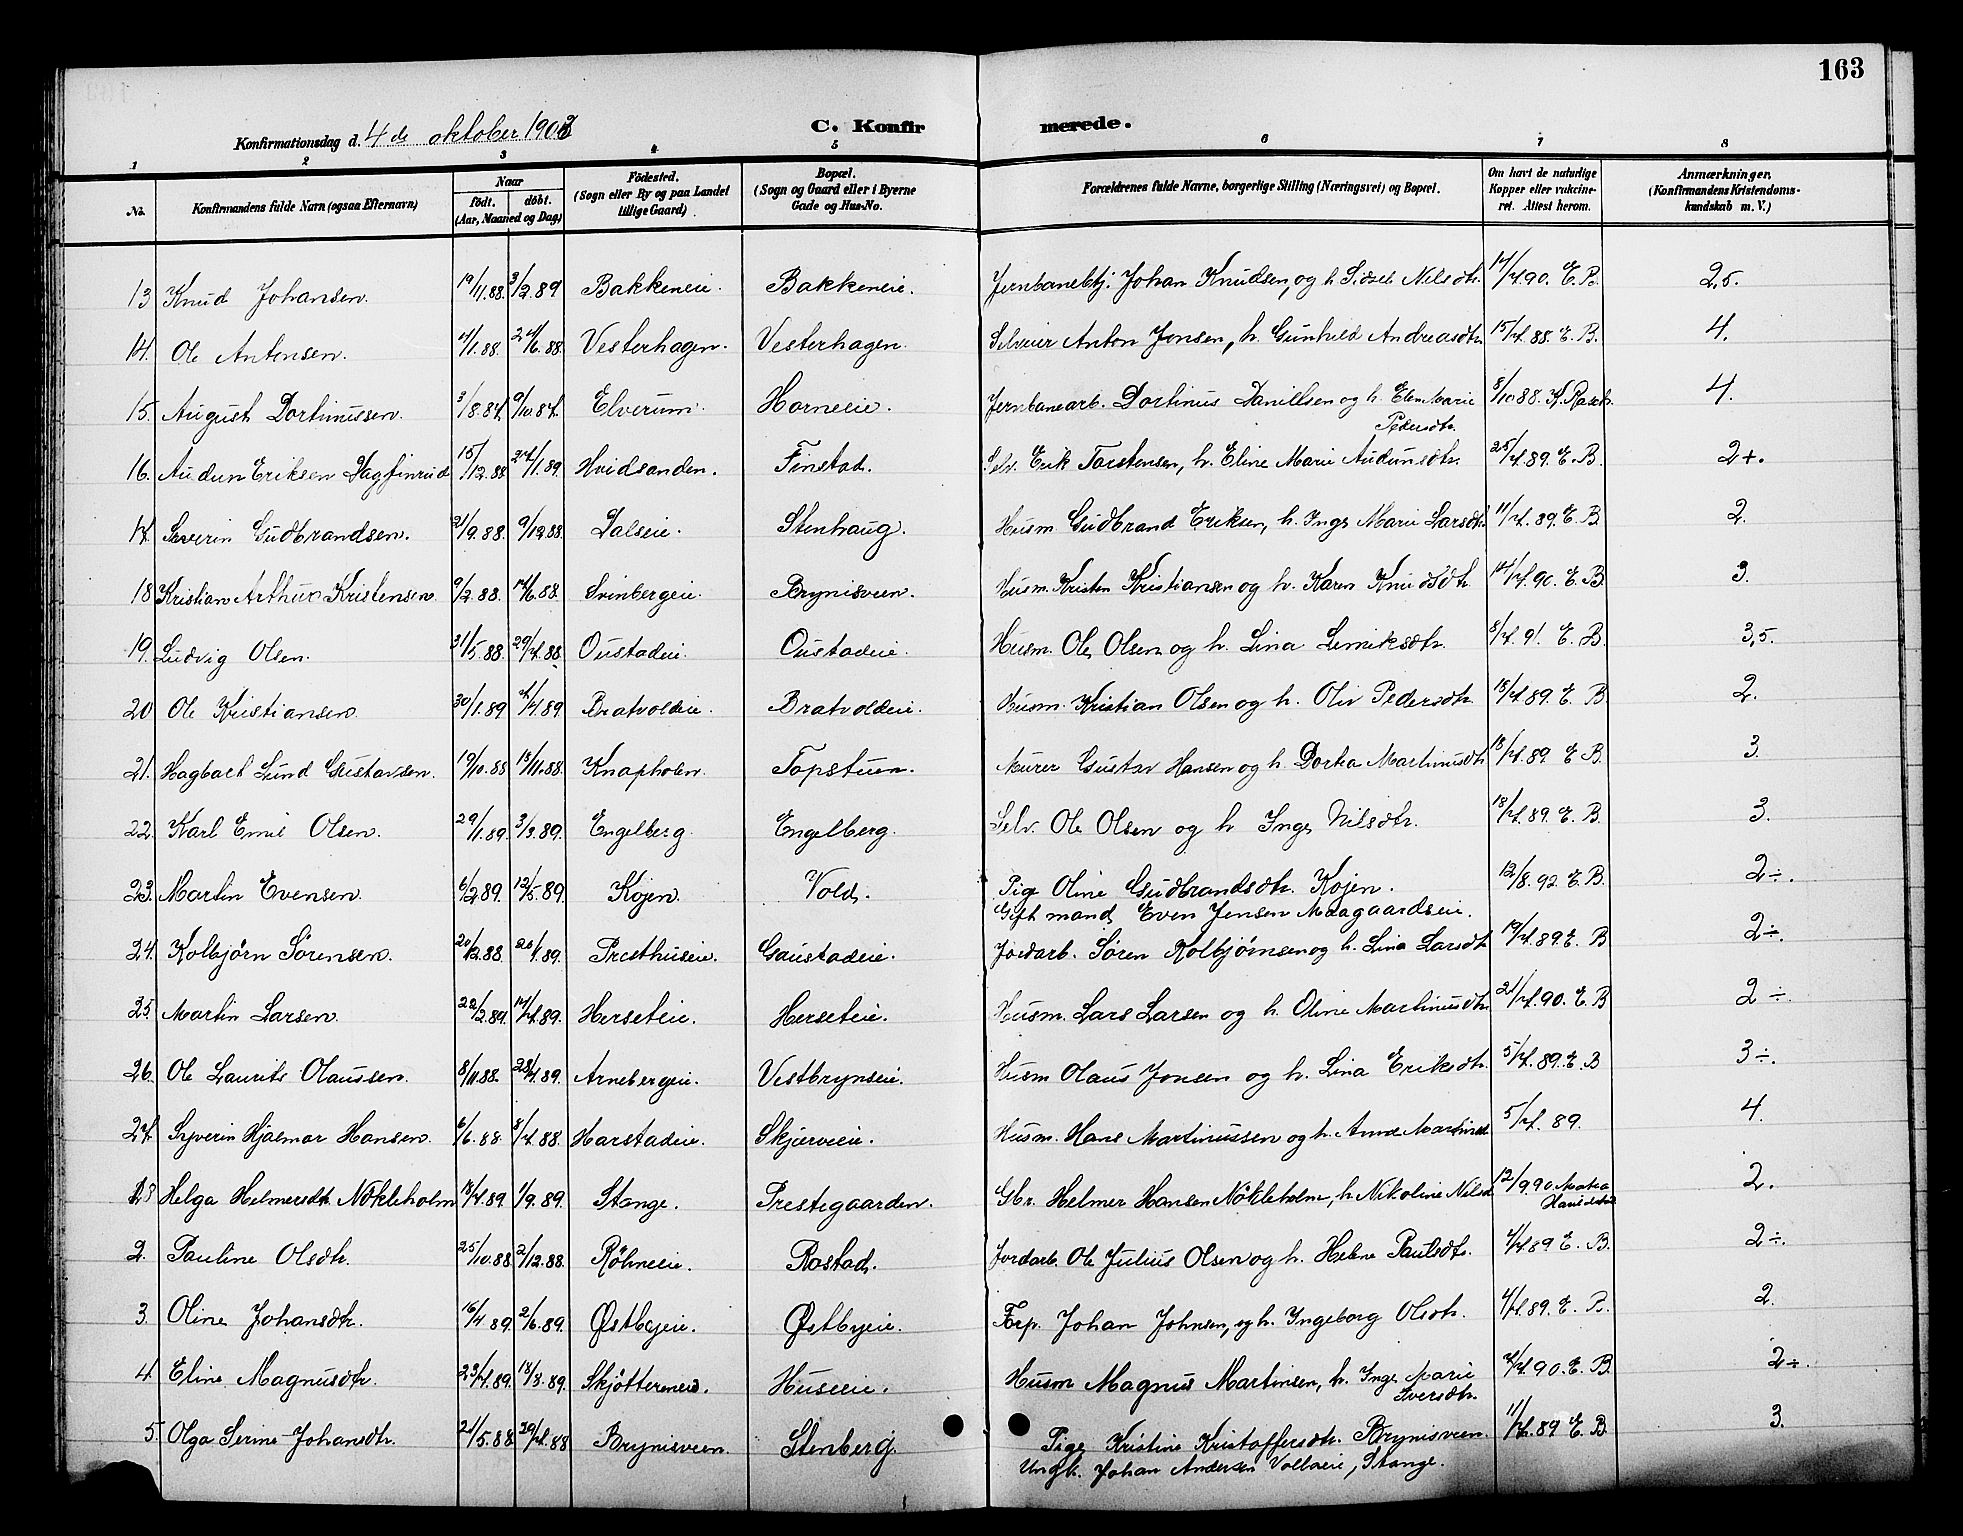 163
Konfirmationsdag d. 4 de oktober 1903
C. Konfirmerede.
1 2 3 4 5 6 7 8
No. Konfirmandens fulde Navn (ogsaa Efternavn) Naar født. døbt. (Aar, Maaned og Dag) Fødested. (Sogn eller By og paa Landet tillige Gaard) Bopæl. (Sogn og Gaard eller i Byerne Gade og Hus-No. Forældrenes fulde Navne, borgerlige Stilling (Næringsvei) og Bopæl. Om havt de naturlige Kopper eller vakcineret. Attest herom. Anmærkninger. (Konfirmandens Kristendomskundskab m. V.)
13 Knud Johansen. 19/11.88. 3/2.89 Bakkeneie. Bakkeneie. Jernbanebtj. Johan Knudsen, og h. Sidsel Nilsdtr. 17/7.90. E. B. 2,5.
14. Ole Antonsen. 24/6.88. Vesterhagen. Vesterhagen. Selveier Anton Jonsen, h. Gunhild Andreasdtr. 15/7.88. E. B. 4.
15. August Dortinussen. 3/8.87. 9/10.87. Elverum. Horneie. Jernbanearb. Dortinus Danillsen og h. Elen Marie Pedersdtr. 8/10 88. 4.
16. Audun Eriksen Dagfinrud 15/12.88 27/1.89. Hvidsanden. Finstad. Selv. Erik Torstensen, h. Eline Marie Audunsdtr. 25/7.89. E. B. 2+.
17. Severin Gudbrandsen. 21/9.88. 9/12.88. Dalseie. Stenhaug. Husm. Gudbrand Eriksen, h. Inge Marie Larsdtr. 11/7.89. E. B 2.
18 Kristian Arthur Kristensen. 9/2.88. 17/6.88. Svinbergeie. Brynisveen. Husm. Kristen Kristiansen og h. Karen Knudsdtr. 17/7.90. E. B 3.
19. Ludvig Olsen. 31/5.88. 29/7.88. Oustadeie. Oustadeie. Husm. Ole Olsen og h. Lina Lemiksdtr. 8/7.91. E. B. 3,5.
20 Ole Kristiansen. 30/1.89 7/4.89. Bratvoldeie. Bratvoldeie. Husm. Kristian Olsen og h. Oliv Pedersdtr. 18/7.89. E. B 2.
21. Hagbart Lund Gustavsen. 19/10.88 18/11.88. Knapholen. Topstuen. Murer Gustav Hansen og h. Dorka Martinusdtr. 18/7.89 E B. 3.
22. Karl Emil Olsen. 29/1.89. 3/3.89. Engelberg Engelberg. Selv. Ole Olsen og h. Inge Nilsdtr. 18/7.89. E B. 3.
23. Martin Evensen. 6/2.89. 12/5.89. Kojen. Vold. Pige Oline Gudbrandsdtr. Kojen. 12/8.92. E. B. 2÷.
Gift mand Even Jensen Maagaardseie.
24. Kolbjørn Sørensen. 20/12.88. 20/1.89. Presthuseie. Gaustadeie. Jordarb. Søren Kolbjørnsen og h. Lina Larsdtr. 19/7.89. E. B 2÷.
25. Martin Larsen. 22/2.89. 14/7.89. Herseteie. Herseteie. Husm. Lars Larsen og h. Oline Martinusdtr. 21/7.90. E. B 2÷.
26. Ole Laurits Olaussen. 8/11.88. 28/4.89. Arnebergeie. Vestbrynseie. Husm Olaus Jonsen og h. Lina Eriksdtr. 5/7.89. E. B 3÷.
27. Syverin Hjalmar Hansen. 6/6.88 8/7.88. Harstadeie. Skjærveie. Husm. Hans Martinussen og h. Anne 5/7.89. 4
1. Helga Helmersdtr. Nøkleholm 14/7.89. 1/9.89. Stange. Prestegaarden. Gbr. Helmer Hansen Nøkleholm, h. Nikoline Nilsd. 12/9.90 2.
2. Pauline Olsdtr. 25/10.88. 2/12.88. Røhneeie. Rostad. Jordarb. Ole Julius Olsen og h. Helene Paulsdtr. 4/7.89 E. B. 2÷.
3. Oline Johansdtr. 16/4 89. 2/6.89. Østbyeie. Østbyeie. Forp. Johan Johnsen, og h. Ingeborg Olsdtr. 4/7.89. E. B. 2.
4. Eline Magnusdtr. 23/7.89. 18/8.89. Huseie. Husm Magnus Martinsen, h. Inge Marie Iversdtr. 2/7.90. E. B. 2÷.
5. Olga Serine Johansdtr. 21/5.88. 29/7.88 Brynisveen. Stenberg. Pige Kristine Kristoffersdtr. Brynisveen. 11/7.89 E. B. 3.
Ungk. Johan Andersen Volbaeie, Stange.